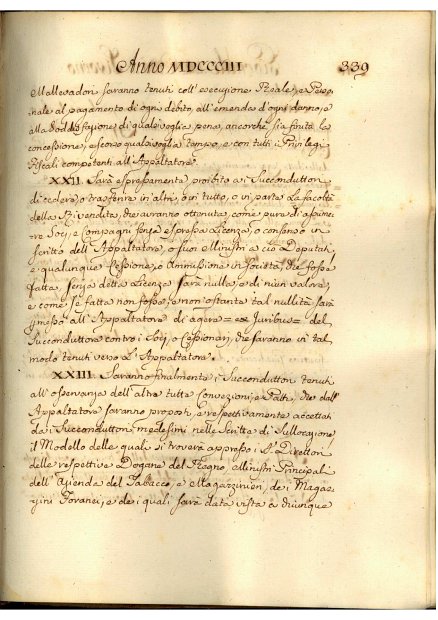 Anno MDCCCIII 339
Mallevadori saranno tenuti coll'esecuzione Reale, e Perso
nale al pagamento di ogni debito, all'emenda d'ogni danno, e
alla Soddisfazione di qualsivoglia pena, ancorchè sia finita la
concessione, e scorso qualsivoglia tempo, e con tutti i Privilegi
Fiscali competenti all'Appaltatore.
XXII. Sarà espressamente proibito a i Succonduttori
di cedere, o trasferire in altri, o in tutto, o in parte la facoltà
della Rivendita, che avranno ottenuta, come pure di assume
re Socj, e Compagni senza espressa Licenza, o consenso in
scritto dell'Appaltatore, o suoi Ministri a ciò Deputati,
e qualunque Cessione, o Ammissione in società, che fosse
fatta, senza detta Licenza sarà nulla, e di niun valore,
e come se fatta non fosse, e non ostante tal nullità sarà
permesso all'Appaltatore di agere = ex Juribus = del
Succonduttore contro i Socj, o Cessionarj, che saranno in tal
modo tenuti verso l'Appaltatore.
XXIII. Saranno finalmente i Succonduttori tenuti
all'osservanza dell'altre tutte Convenzioni, e Patti, che dall'
Appaltatore saranno proposti, e respettivamente accettati
da i Succonduttori medesimi nelle Scritte di Sullocazione
il Modello delle quali si troverà appresso i S.ri Direttori
delle respettive Dogane del Regno, Ministri Principali
dell'Azienda del Tabacco, e Magazzinieri, de i Magaz
zini Foranei, e de i quali sarà data vista a chiunque